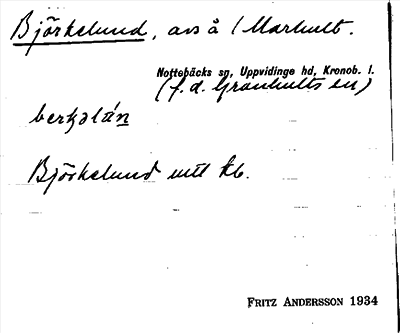 Björkelund, avs å 1 Marhult.
Nottebäcks sn, Uppvidinge hd, Kronob. l.
(f. d. Granhults sn)
berkəlún
Björkelund utt kb.
FRITZ ANDERSSON 1934